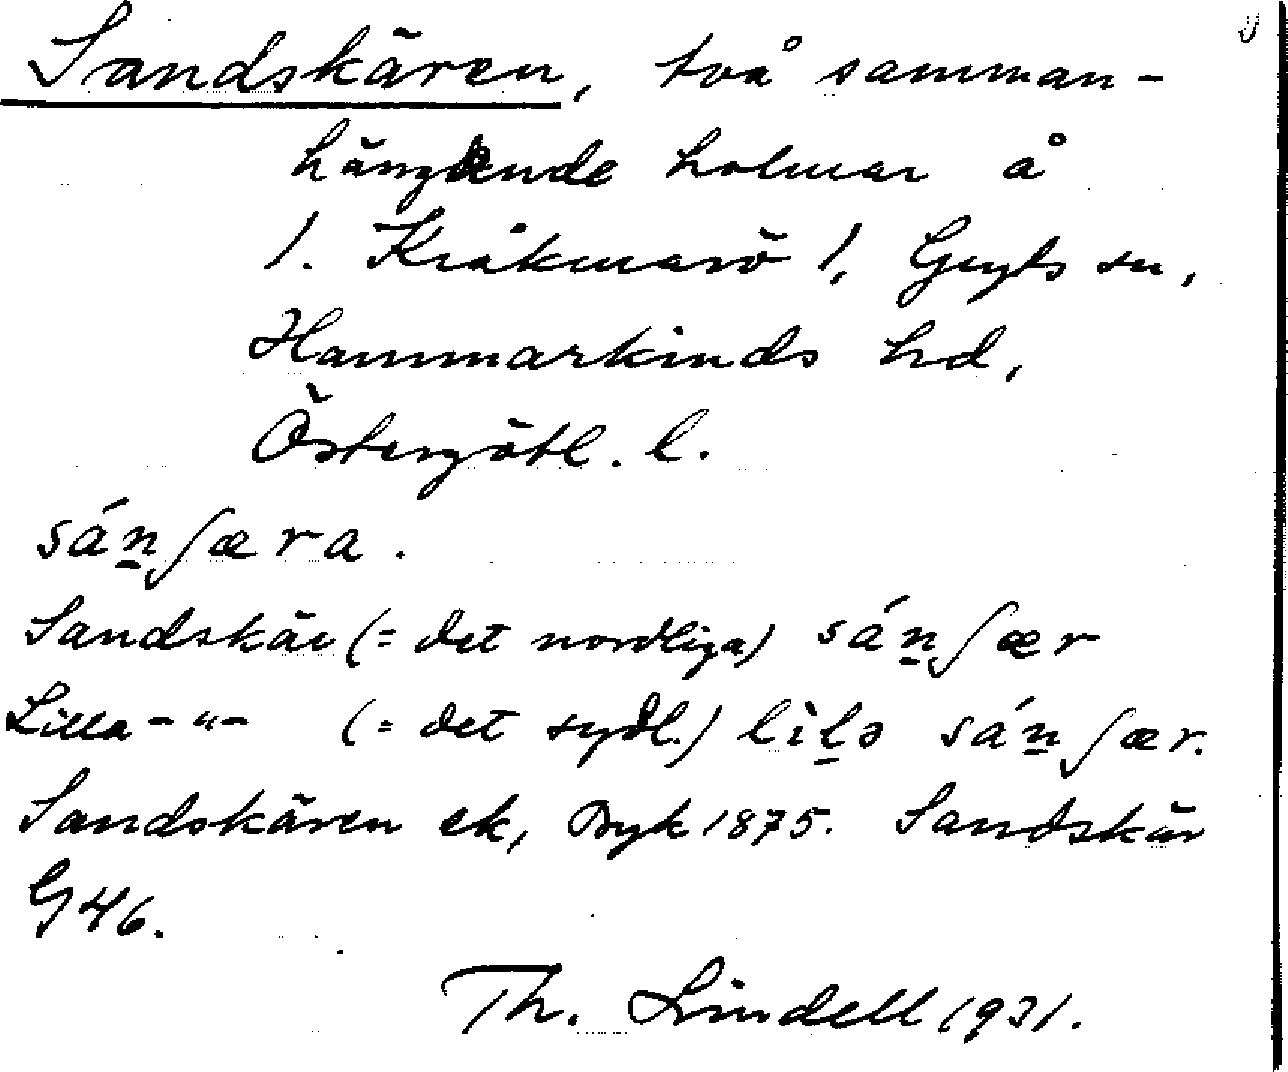 Sandskären, två samman-
hängende holmar å
1. Kråkmarö 1, Gryts sn,
Hammarkinds hd,
Östergötl. l.
sán̲ʃæra.
Sandskär (= det nordliga) sán̲ʃær
Lilla -"- (= det sydl.) lìl̲ə sán̲ʃær.
Sandskären ek, Byk 1875. Sandskär
G 46.
Th. Lindell 1931.